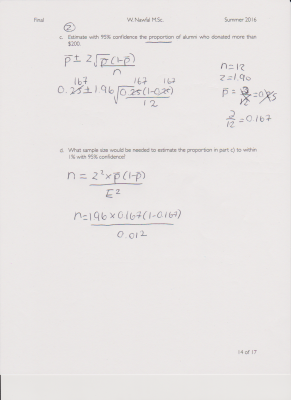 Final W. Nawfal M.Sc. Summer 2016
②
c. Estimate with 95% confidence the proportion of alumni who donated more than
$200.
p̄ ± z √p̄(1-p̄)
n
n=12
z=1.96
167 167 167
0.25 ± 1.96 √0.25(1-0.25)
12
p̄ = 3/12 = 0.25
2/12 = 0.167
d. What sample size would be needed to estimate the proportion in part c) to within
1% with 95% confidence?
n = z² × p̄(1-p̄)
E²
n=1.96 × 0.167(1-0.167)
0.01²
14 of 17